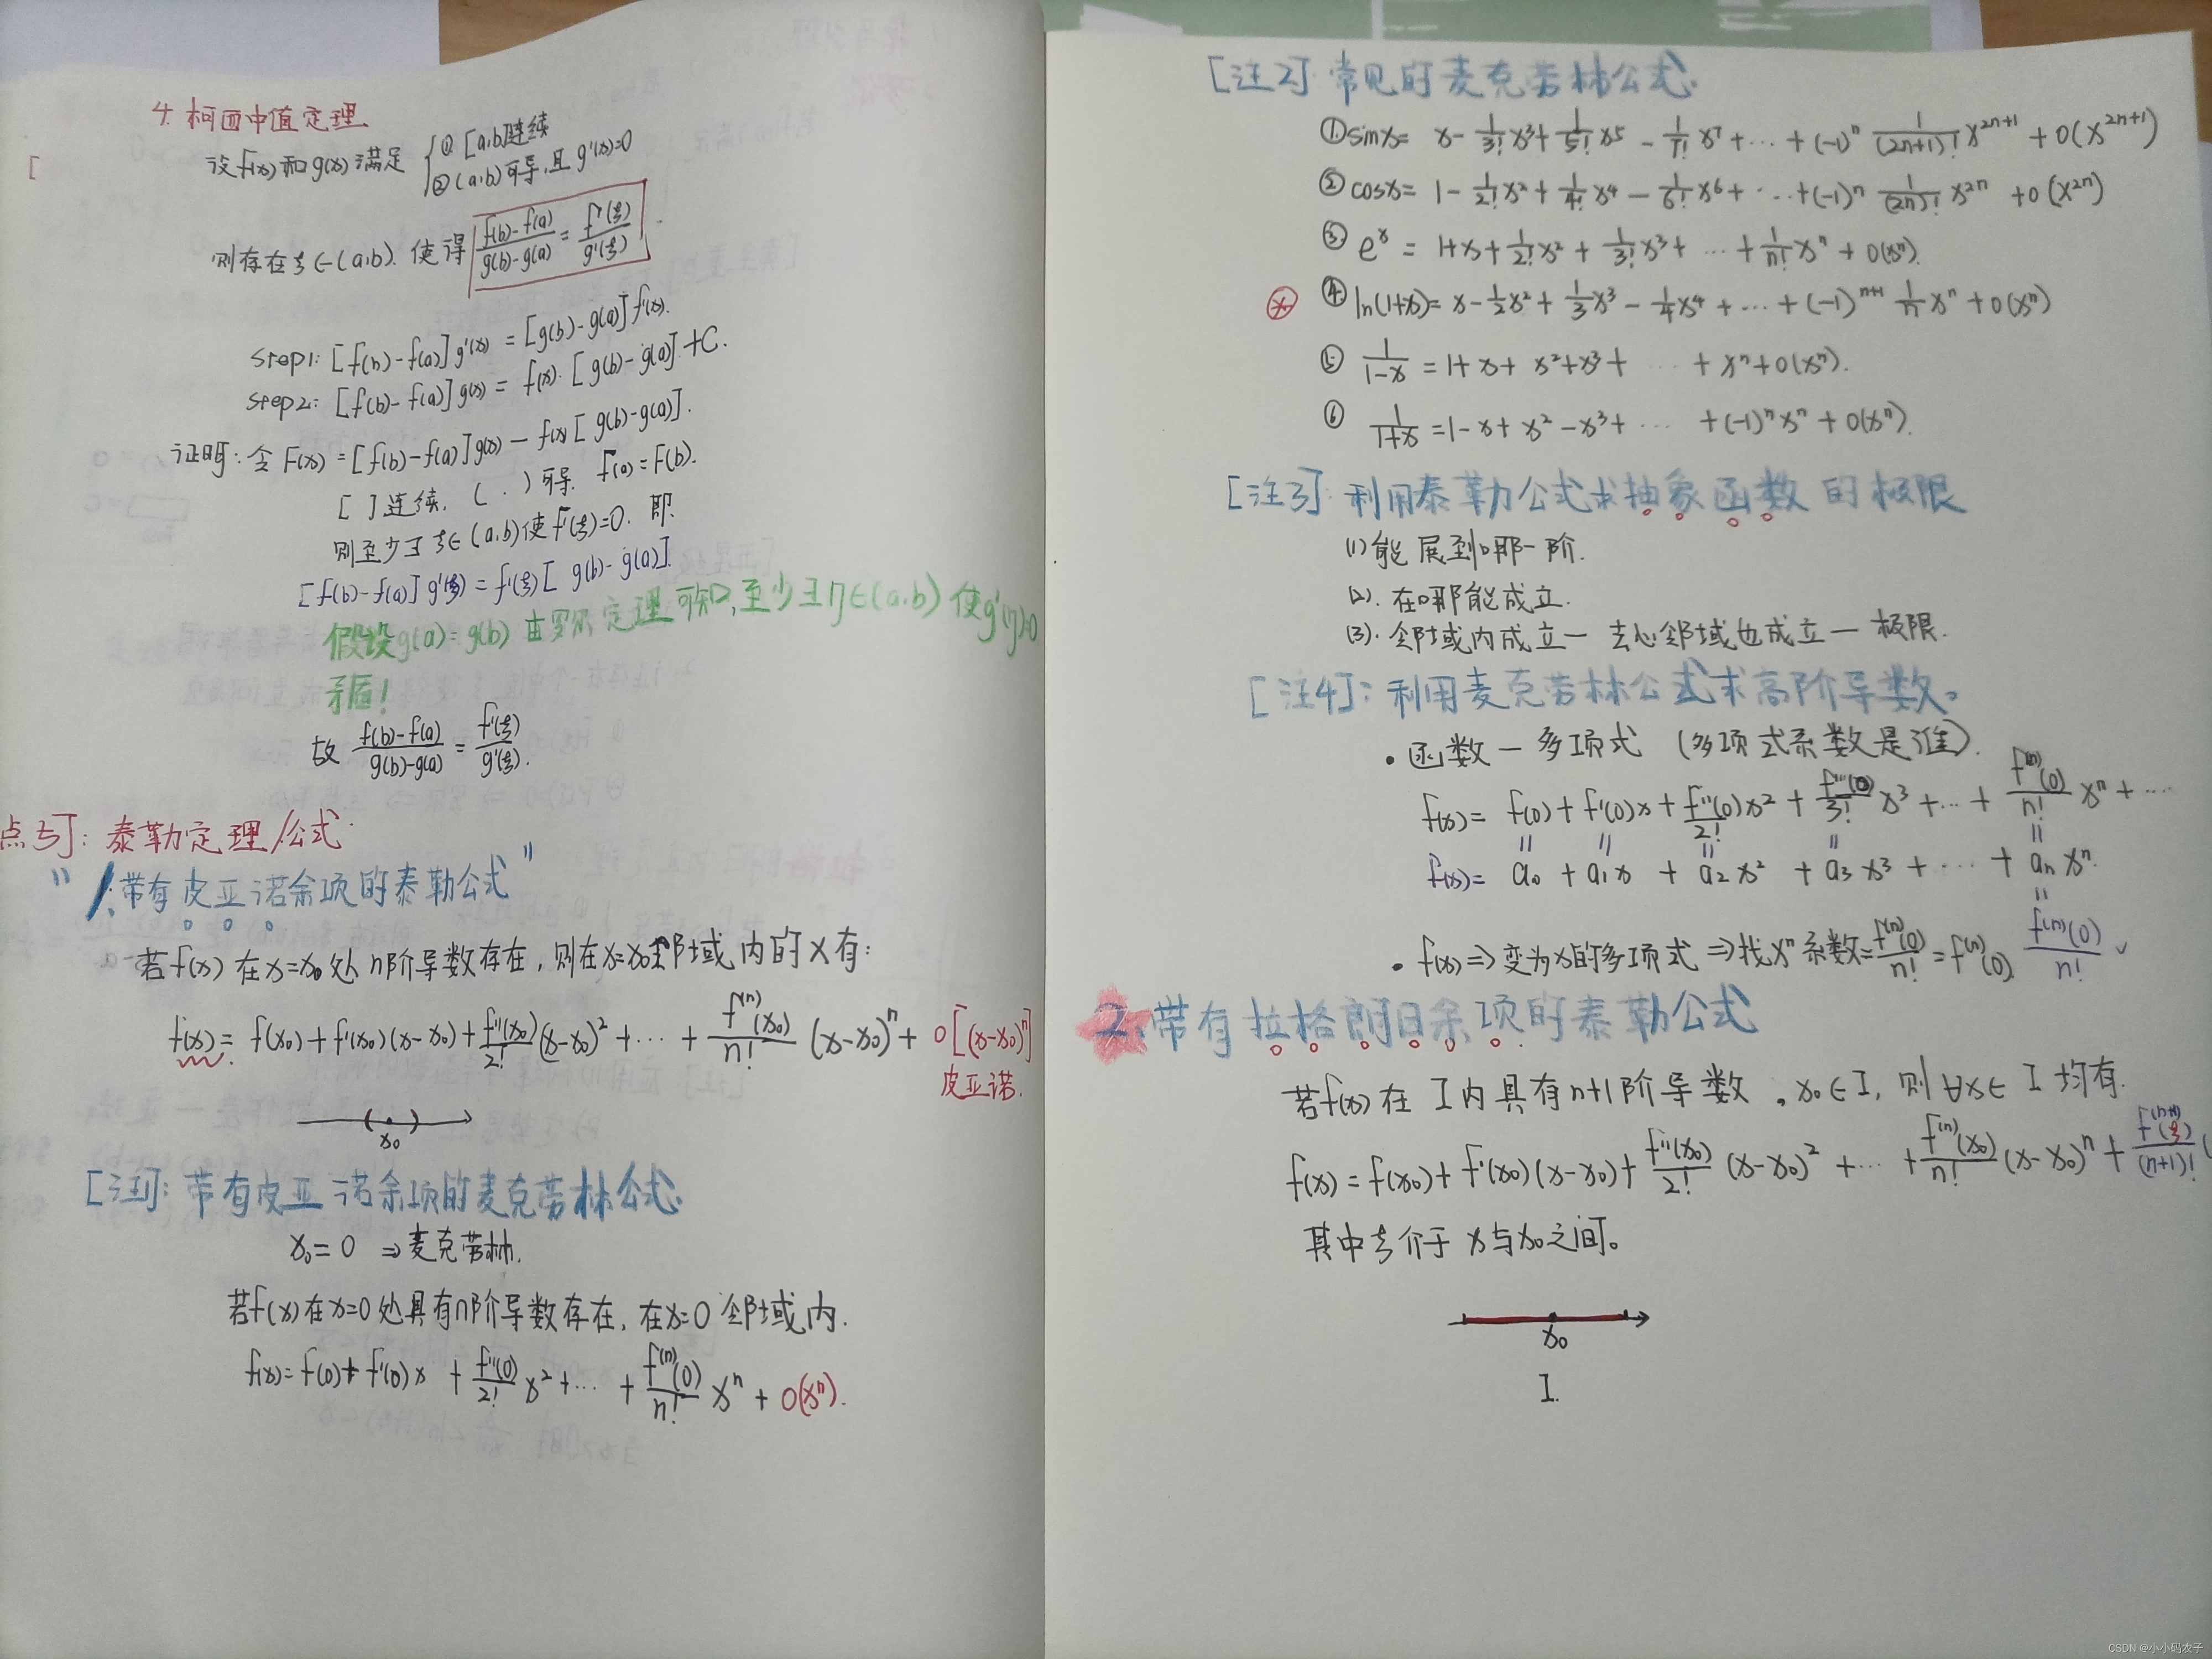 4. 柯西中值定理
设f(x)和g(x)满足 { ① [a,b]连续
② (a,b)可导,且 g'(x)=0
则存在ξ∈(a,b). 使得 (f(b)-f(a))/(g(b)-g(a)) = f'(ξ)/g'(ξ) .
step1: [f(b)-f(a)]g'(x) = [g(b)-g(a)]f'(x).
step2: [f(b)-f(a)]g(x) = f(x).[g(b)-g(a)]+C.
证明: 令 F(x) = [f(b)-f(a)]g(x) - f(x)[g(b)-g(a)].
[ ]连续, ( . )可导. F(a)=F(b).
则至少∃ ξ∈(a,b)使F'(ξ)=0. 即
[f(b)-f(a)]g'(ξ) = f'(ξ)[g(b)-g(a)].
假设g(a)=g(b) 由罗尔定理可知,至少∃η∈(a,b)使g'(η)=0
矛盾!
故 (f(b)-f(a))/(g(b)-g(a)) = f'(ξ)/g'(ξ).
点5]: 泰勒定理/公式
" 1. 带有皮亚诺余项的泰勒公式"
若f(x)在x=x₀处n阶导数存在,则在x=x₀邻域内的x有:
f(x) = f(x₀)+f'(x₀)(x-x₀)+f''(x₀)/2!(x-x₀)²+⋯+f⁽ⁿ⁾(x₀)/n!(x-x₀)ⁿ+o[(x-x₀)ⁿ]
皮亚诺.
x₀
[注1]: 带有皮亚诺余项的麦克劳林公式.
x₀=0 ⇒麦克劳林.
若f(x)在x=0处具有n阶导数存在, 在x=0邻域内.
f(x)=f(0)+f'(0)x+f''(0)/2! x²+⋯+f⁽ⁿ⁾(0)/n! xⁿ+o(xⁿ).
[注2] 常见的麦克劳林公式.
①sinx= x-1/3!x³+1/5!x⁵-1/7!x⁷+⋯+(-1)ⁿ 1/(2n+1)! x²ⁿ⁺¹+o(x²ⁿ⁺¹)
②cosx= 1-1/2!x²+1/4!x⁴-1/6!x⁶+⋯+(-1)ⁿ 1/(2n)! x²ⁿ+o(x²ⁿ)
③ eˣ = 1+x+1/2!x²+1/3!x³+⋯+1/n!xⁿ+o(xⁿ).
④ ln(1+x)= x-1/2x²+1/3x³-1/4x⁴+⋯+(-1)ⁿ⁺¹ 1/n xⁿ+o(xⁿ)
⑤ 1/(1-x) =1+x+x²+x³+⋯+xⁿ+o(xⁿ).
⑥ 1/(1+x) =1-x+x²-x³+⋯+(-1)ⁿxⁿ+o(xⁿ).
[注3] 利用泰勒公式求抽象函数的极限
(1)能展到哪一阶.
(2). 在哪能成立.
(3). 邻域内成立一去心邻域也成立一极限.
[注4]: 利用麦克劳林公式求高阶导数。
• 函数一多项式 (多项式系数是谁).
f(x)= f(0)+f'(0)x+f''(0)/2! x²+f'''(0)/3! x³+⋯+f⁽ⁿ⁾(0)/n! xⁿ+⋯
= = = = =
f(x)= a₀+a₁x+a₂x²+a₃x³+⋯+aₙxⁿ.
=
• f(x)⇒变为x的多项式⇒找xⁿ系数=f⁽ⁿ⁾(0)/n! = f⁽ⁿ⁾(0) f⁽ⁿ⁾(0)/n! ✓
2. 带有拉格朗日余项的泰勒公式
若f(x)在I内具有n+1阶导数. x₀∈I, 则∀x∈I均有.
f(x)=f(x₀)+f'(x₀)(x-x₀)+f''(x₀)/2!(x-x₀)²+⋯+f⁽ⁿ⁾(x₀)/n!(x-x₀)ⁿ+f⁽ⁿ⁺¹⁾(ξ)/(n+1)!(
其中ξ介于x与x₀之间。
x₀
I.
CSDN @小小码农子